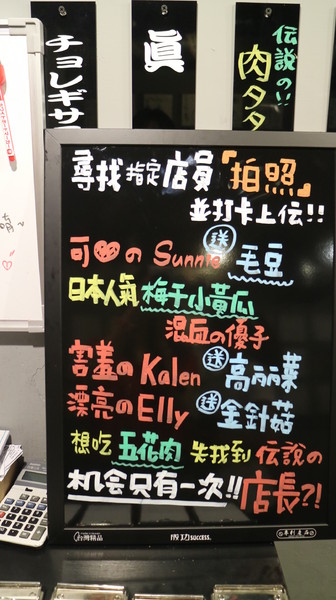 チョレギサラ
眞
伝説の!!
肉タタ
尋找 指定 店員「拍照」
並打卡上伝!!
可♥の Sunnie 送 毛豆
日本人氣 梅干小黃瓜
混血の優子
害羞の Kalen 送 高丽菜
漂亮の Elly 送 金針菇
想吃 五花肉 先找到 伝説の
机会只有一次!! 店長?!
台灣精品
成功 SUCCESS.